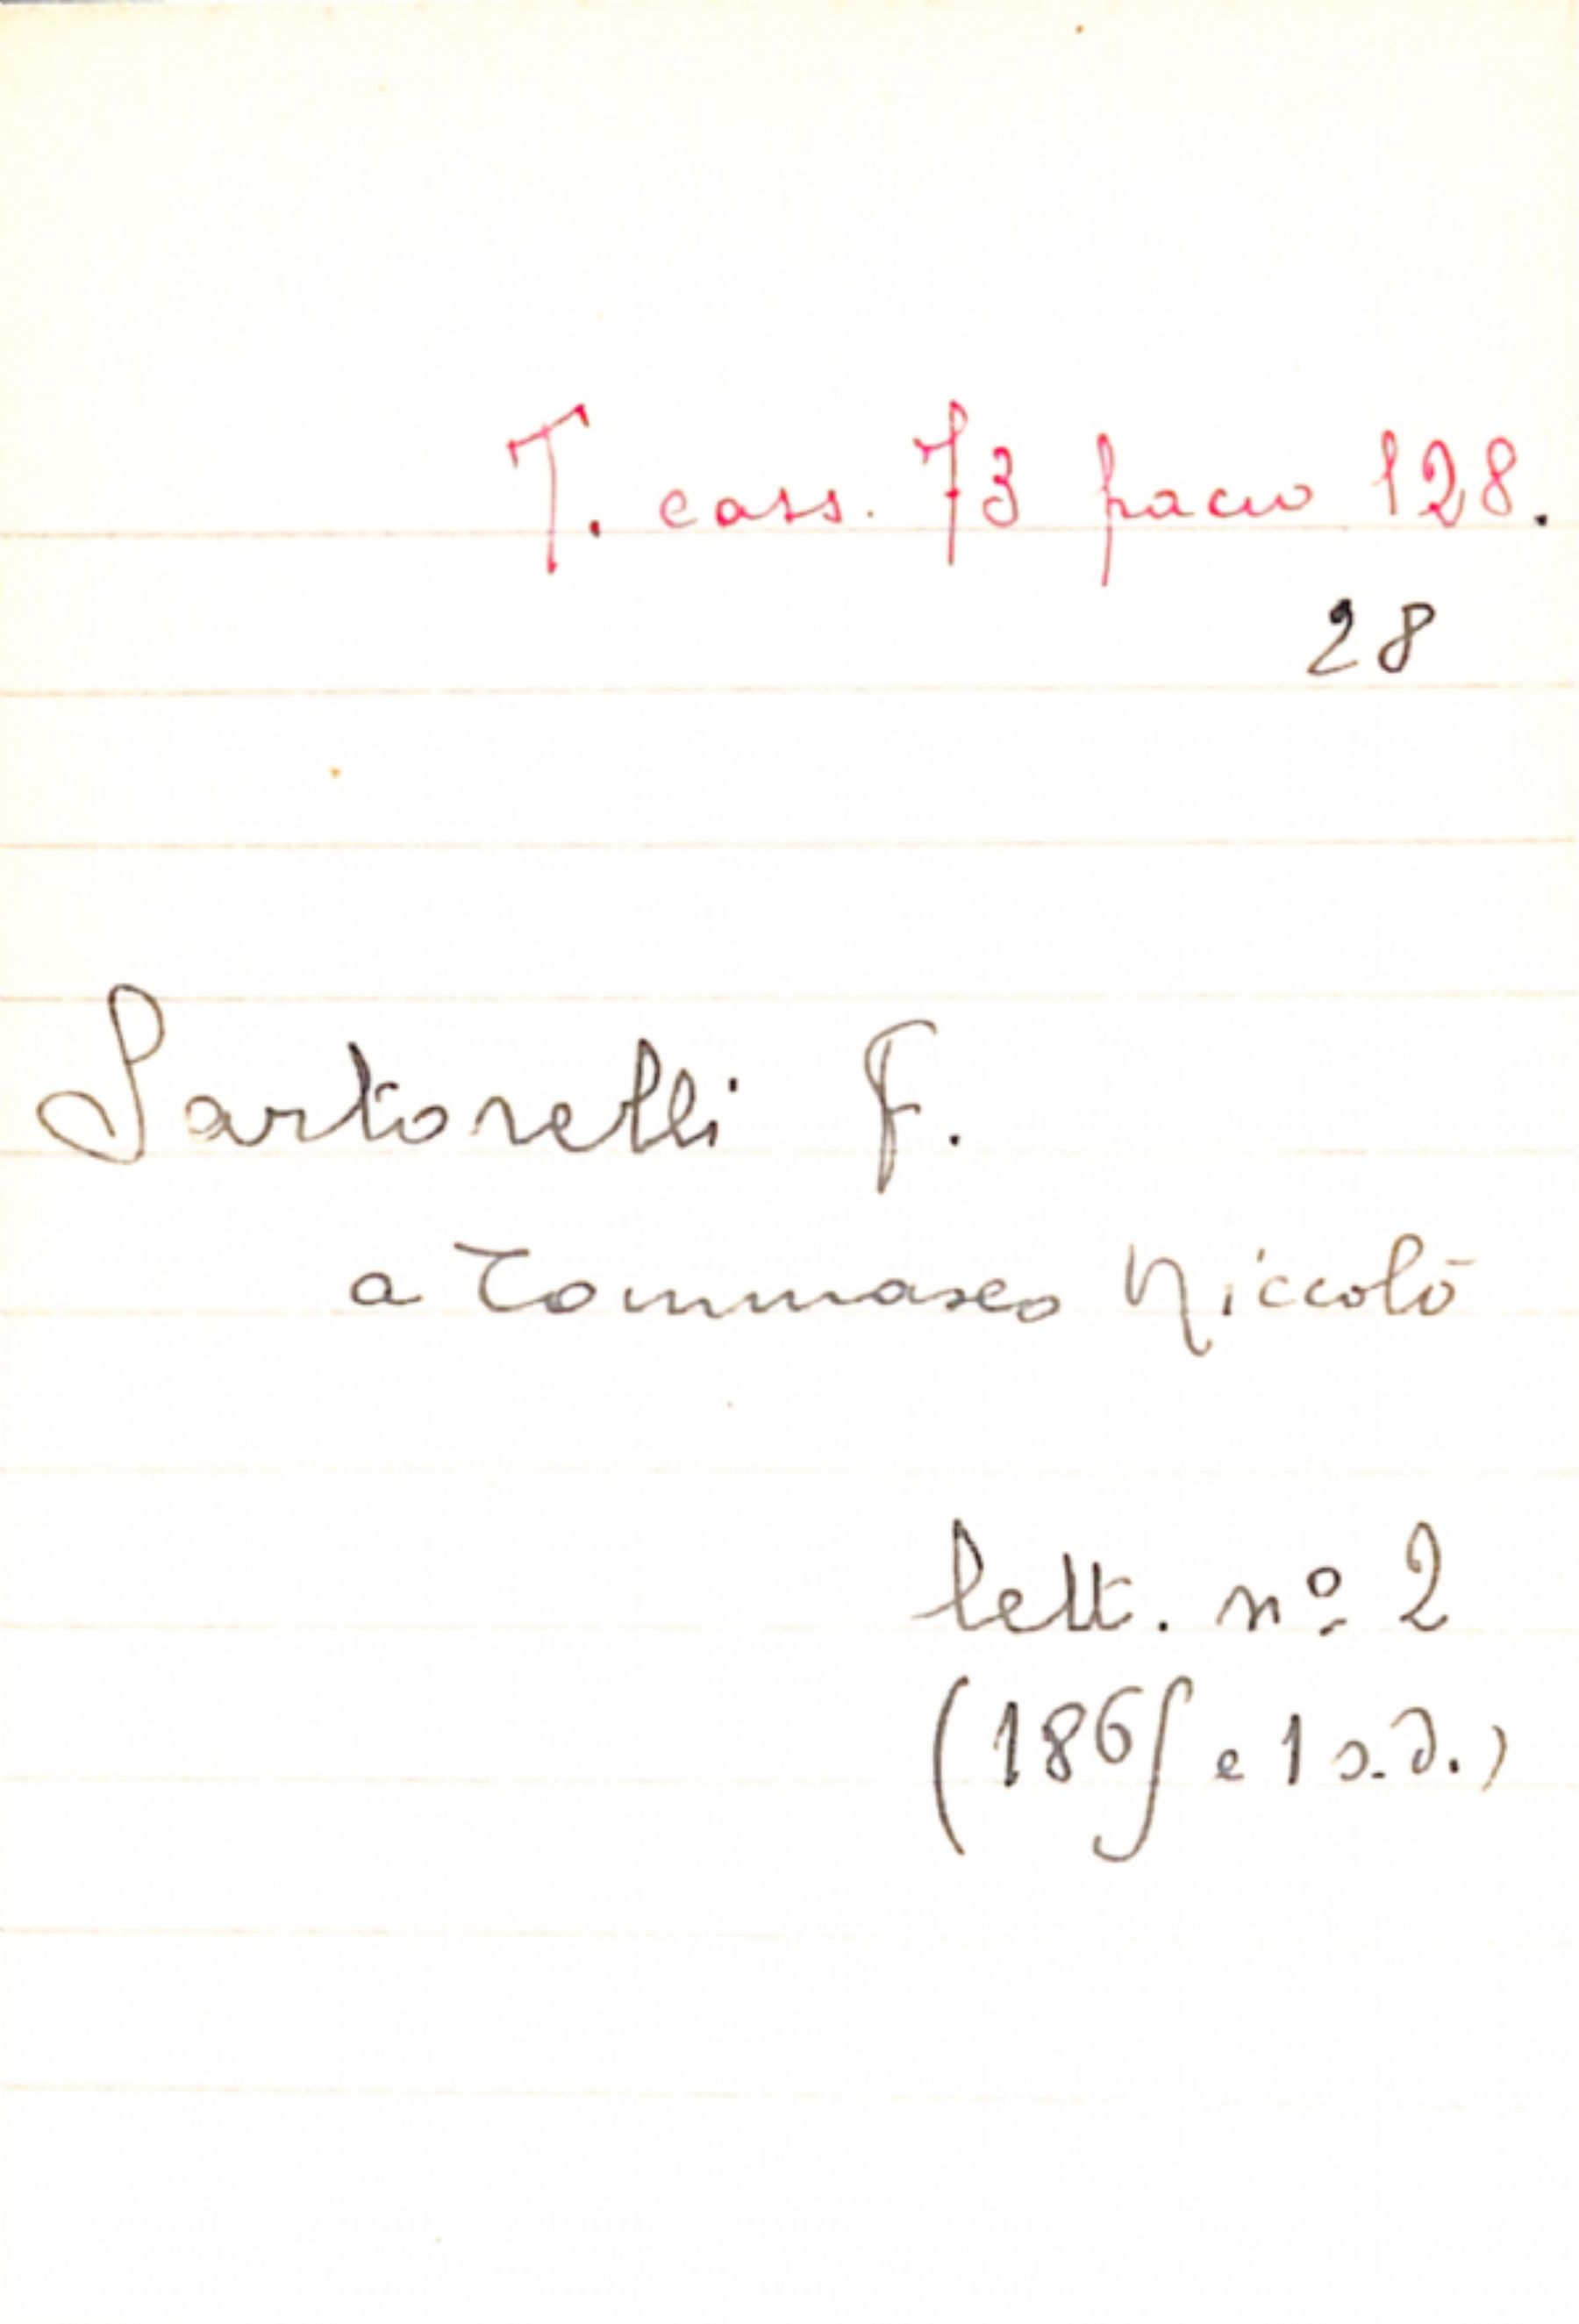 T. cass. 73 pacco 128.
28
Sartorelli F.
a Tommaseo Niccolò
lett. nº 2
(1865 e 1 s.d.)